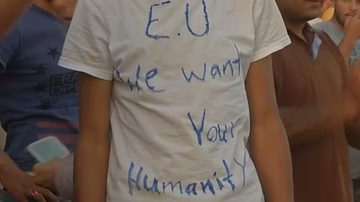 E.U
We Want
Your
Humanity